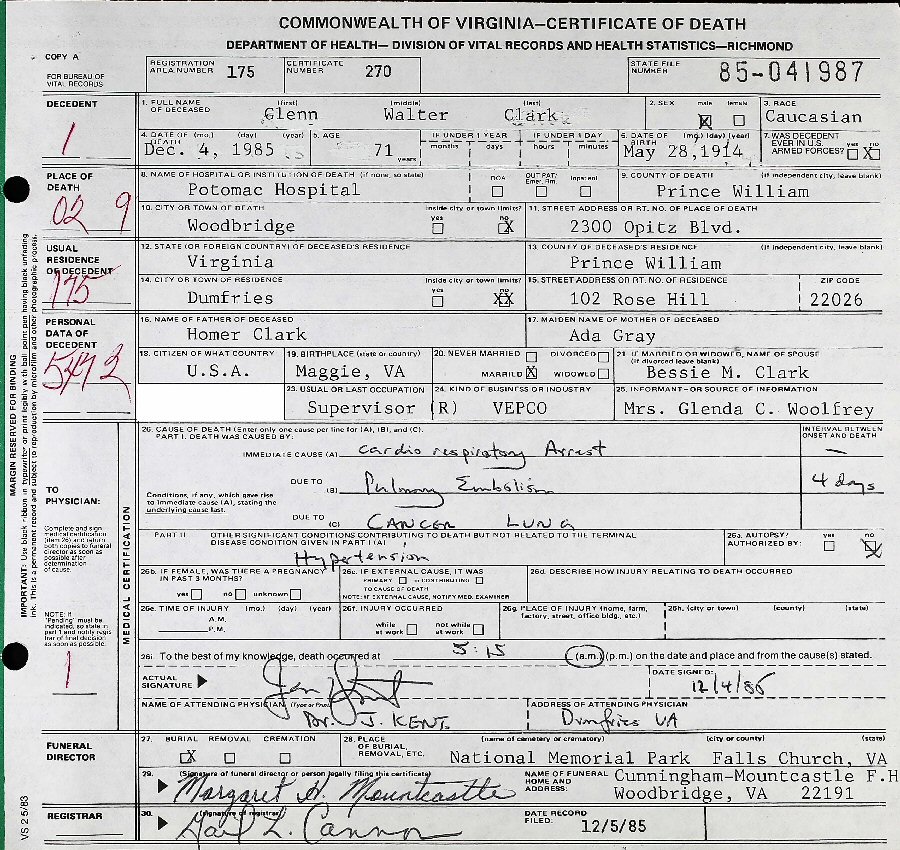 COMMONWEALTH OF VIRGINIA—CERTIFICATE OF DEATH
DEPARTMENT OF HEALTH— DIVISION OF VITAL RECORDS AND HEALTH STATISTICS—RICHMOND
COPY A
FOR BUREAU OF VITAL RECORDS
REGISTRATION AREA NUMBER 175 CERTIFICATE NUMBER 270 STATE FILE NUMBER 85-041987
DECEDENT
1
1. FULL NAME OF DECEASED (first) (middle) (last) 2. SEX male female 3. RACE
Glenn Walter Clark X Caucasian
4. DATE OF DEATH (mo.) (day) (year) 5. AGE IF UNDER 1 YEAR IF UNDER 1 DAY 6. DATE OF BIRTH (mo.) (day) (year) 7. WAS DECEDENT EVER IN U.S. ARMED FORCES? yes no
Dec. 4, 1985 71 years months days hours minutes May 28,1914 X
PLACE OF DEATH
02 9
8. NAME OF HOSPITAL OR INSTITUTION OF DEATH (if none, so state) DOA OUT PAT/ Emer. Rm. Inpatient 9. COUNTY OF DEATH (if independent city, leave blank)
Potomac Hospital Prince William
10. CITY OR TOWN OF DEATH Inside city or town limits? yes no 11. STREET ADDRESS OR RT. NO. OF PLACE OF DEATH
Woodbridge X 2300 Opitz Blvd.
USUAL RESIDENCE OF DECEDENT
175
12. STATE (OR FOREIGN COUNTRY) OF DECEASED'S RESIDENCE 13. COUNTY OF DECEASED'S RESIDENCE (if independent city, leave blank)
Virginia Prince William
14. CITY OR TOWN OF RESIDENCE Inside city or town limits? yes no 15. STREET ADDRESS OR RT. NO. OF RESIDENCE ZIP CODE
Dumfries XX 102 Rose Hill 22026
PERSONAL DATA OF DECEDENT
16. NAME OF FATHER OF DECEASED 17. MAIDEN NAME OF MOTHER OF DECEASED
Homer Clark Ada Gray
18. CITIZEN OF WHAT COUNTRY 19. BIRTHPLACE (state or country) 20. NEVER MARRIED DIVORCED 21. IF MARRIED OR WIDOWED, NAME OF SPOUSE (if divorced leave blank)
U.S.A. Maggie, VA MARRIED X WIDOWED Bessie M. Clark
23. USUAL OR LAST OCCUPATION 24. KIND OF BUSINESS OR INDUSTRY 25. INFORMANT—OR SOURCE OF INFORMATION
Supervisor (R) VEPCO Mrs. Glenda C. Woolfrey
MARGIN RESERVED FOR BINDING
IMPORTANT: Use black ribbon in typewriter or print legibly with ball point pen having black unfading
ink. This is a permanent record and subject to reproduction by microfilm and other photographic process.
TO PHYSICIAN:
Complete and sign medical certification (item 26) and return both copies to funeral director as soon as possible after determination of cause.
NOTE: If "Pending" must be indicated, so state in part 1 and notify registrar of final decision as soon as possible.
1
MEDICAL CERTIFICATION
26. CAUSE OF DEATH (Enter only one cause per line for (A), (B), and (C). INTERVAL BETWEEN ONSET AND DEATH
PART I. DEATH WAS CAUSED BY:
IMMEDIATE CAUSE (A) Cardio respiratory Arrest —
DUE TO (B) Pulmonary Embolism 4 days
Conditions, if any, which gave rise to immediate cause (A), stating the underlying cause last.
DUE TO (C) CANCER LUNG
PART II OTHER SIGNIFICANT CONDITIONS CONTRIBUTING TO DEATH BUT NOT RELATED TO THE TERMINAL DISEASE CONDITION GIVEN IN PART I (A) 26a. AUTOPSY/ AUTHORIZED BY: yes no
Hypertension X
26b. IF FEMALE, WAS THERE A PREGNANCY IN PAST 3 MONTHS? 26c. IF EXTERNAL CAUSE, IT WAS 26d. DESCRIBE HOW INJURY RELATING TO DEATH OCCURRED
PRIMARY or CONTRIBUTING TO CAUSE OF DEATH
yes no unknown NOTE: IF EXTERNAL CAUSE, NOTIFY MED. EXAMINER
26e. TIME OF INJURY (mo.) (day) (year) 26f. INJURY OCCURRED 26g. PLACE OF INJURY (home, farm, factory, street, office bldg., etc.) 26h. (city or town) (county) (state)
A.M. P.M. while at work not while at work
26i. To the best of my knowledge, death occurred at 5:15 (a.m.) (p.m.) on the date and place and from the cause(s) stated.
ACTUAL SIGNATURE DATE SIGNED:
12/4/85
NAME OF ATTENDING PHYSICIAN (Type or Print) ADDRESS OF ATTENDING PHYSICIAN
Dr. J. KENT. Dumfries VA
FUNERAL DIRECTOR
27. BURIAL REMOVAL CREMATION 28. PLACE OF BURIAL, REMOVAL, ETC. (name of cemetery or crematory) (city or county) (state)
X National Memorial Park Falls Church, VA
29. (Signature of funeral director or person legally filing this certificate) NAME OF FUNERAL HOME AND ADDRESS: Cunningham-Mountcastle F.H
Margaret H. Mountcastle Woodbridge, VA 22191
REGISTRAR
30. (signature of registrar) DATE RECORD FILED: 12/5/85
Gail L. Cannon
VS 2 5/83